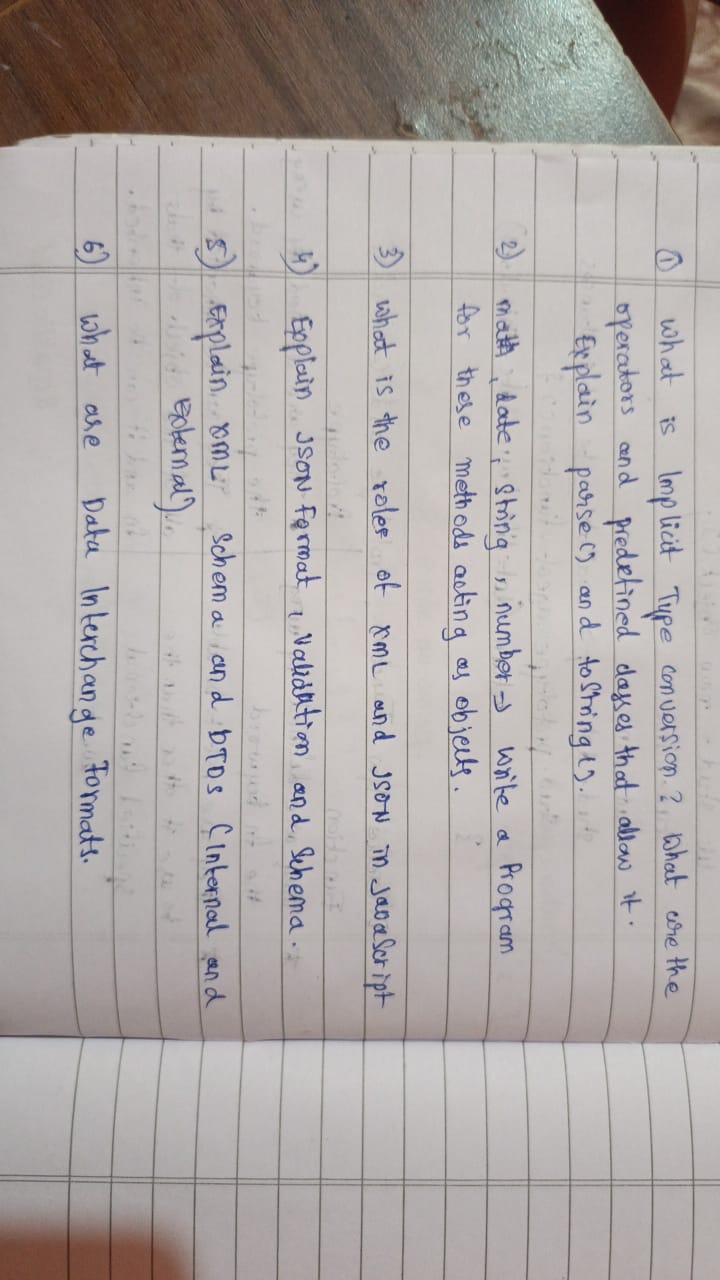 ① What is Implicit Type conversion? What are the
operators and predefined classes that allow it.
Explain parse() and toString().
2) math, date, string, number → Write a Program
for these methods acting as objects.
3) What is the roles of XML and JSON in JavaScript
4) Explain JSON Format, Validation and Schema.
5) Explain XML Schema and DTDs (Internal and
External).
6) What are Data Interchange Formats.